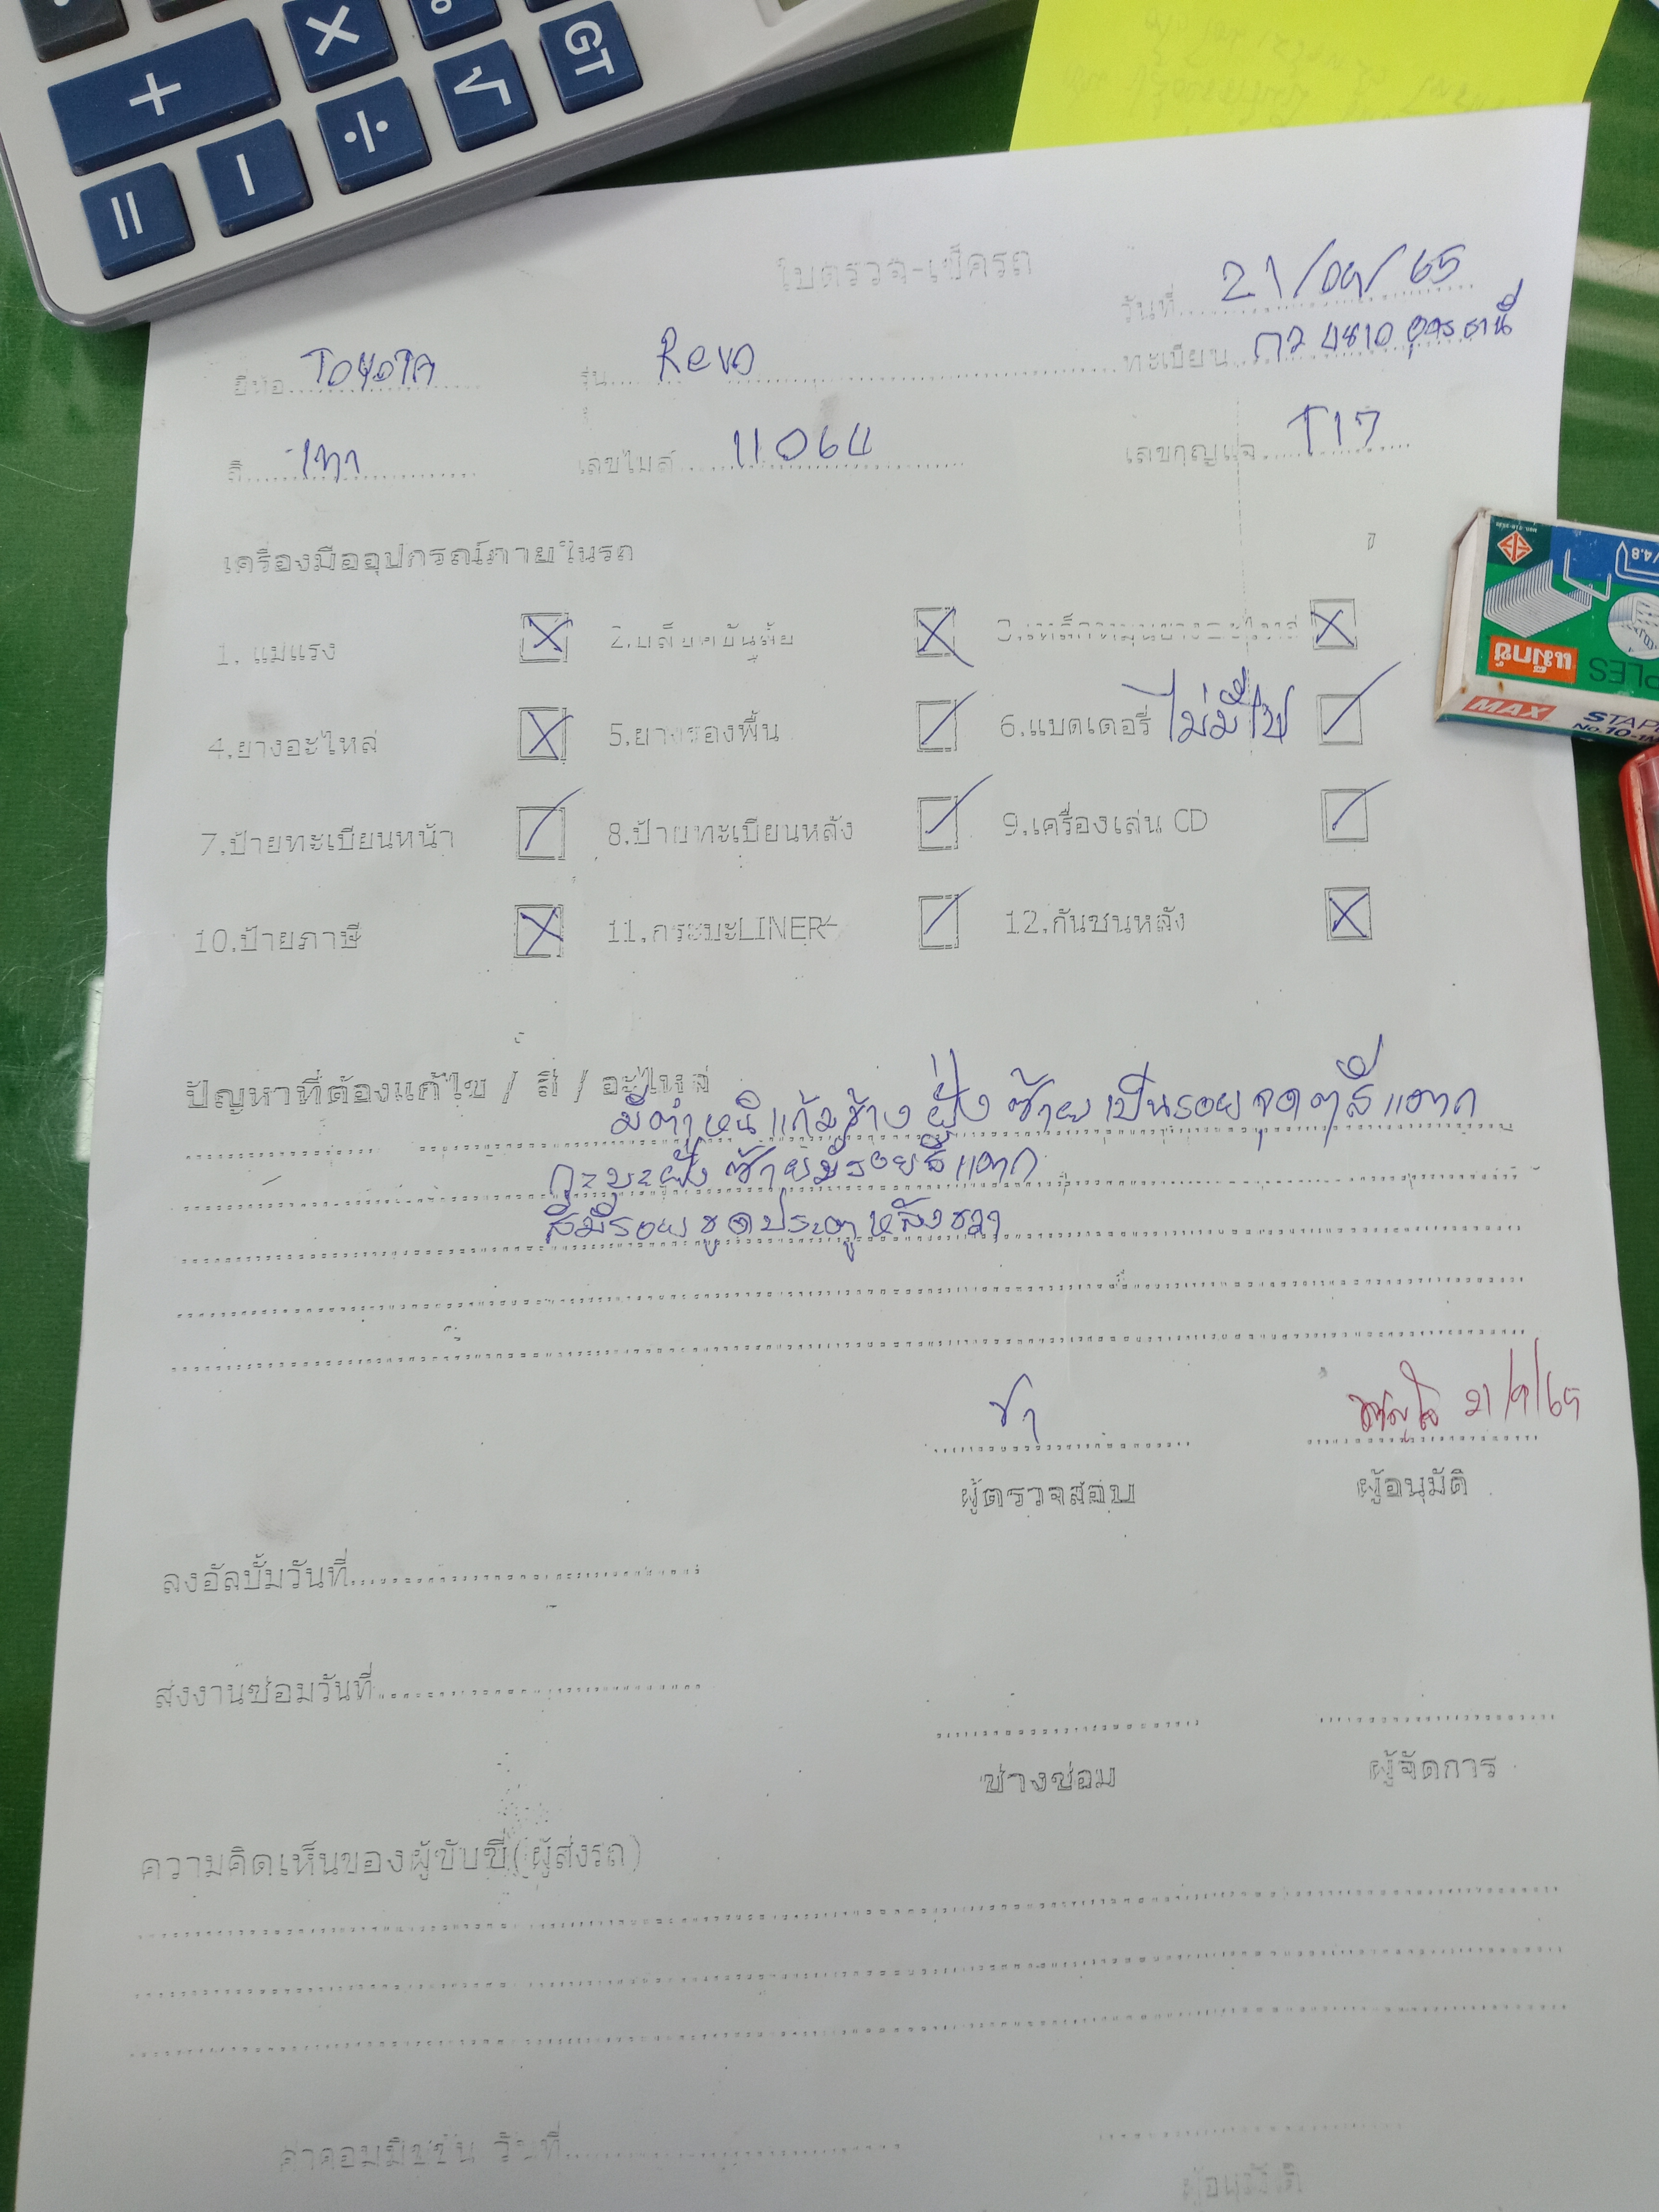 + × % √ GT
= - ÷
ใบตรวจ-เช็ครถ
วันที่ 21/09/65
ยี่ห้อ TOYOTA รุ่น Revo ทะเบียน กว 4810 อุดรธานี
สี เทา เลขไมล์ 11064 เลขกุญแจ T17
เครื่องมืออุปกรณ์ภายในรถ
1. แม่แรง ☒ 2.บล็อคขันล้อ ☒ ☒
4.ยางอะไหล่ ☒ 5.ยางรองพื้น ☑ 6.แบตเตอรี่ ไม่มีไฟ ☑
7.ป้ายทะเบียนหน้า ☑ 8.ป้ายทะเบียนหลัง ☑ 9.เครื่องเล่น CD ☑
10.ป้ายภาษี ☒ 11.กระบะLINER ☑ 12.กันชนหลัง ☒
ปัญหาที่ต้องแก้ไข / สี / อะไหล่
มีตำหนิแก้มข้างฝั่งซ้ายเป็นรอยจุดๆสีแตก
กะบะฝั่งซ้ายมีรอยสีแตก
สีมีรอยขูดประตูหลังขวา
21/9/65
ผู้ตรวจสอบ ผู้อนุมัติ
ลงอัลบั้มวันที่
ส่งงานซ่อมวันที่
ช่างซ่อม ผู้จัดการ
ความคิดเห็นของผู้ขับขี่(ผู้ส่งรถ)
ค่าคอมมิชชั่น วันที่
ผู้อนุมัติ
แม็กซ์
MAX STAPLES
No.10-1M
/4.8